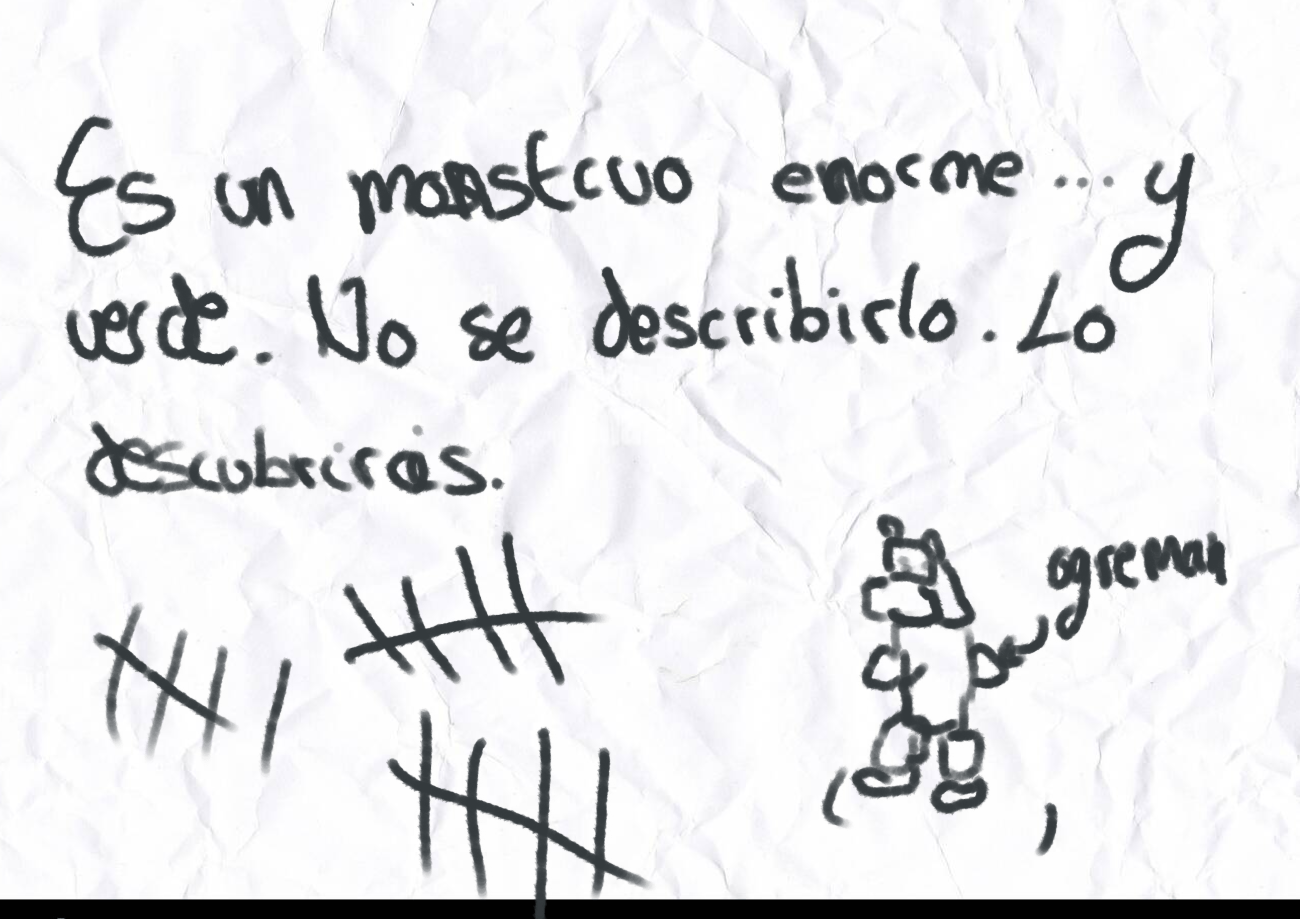 Es un monstruo enorme... y
verde. No se describirlo. Lo
descubriras.
ogreman